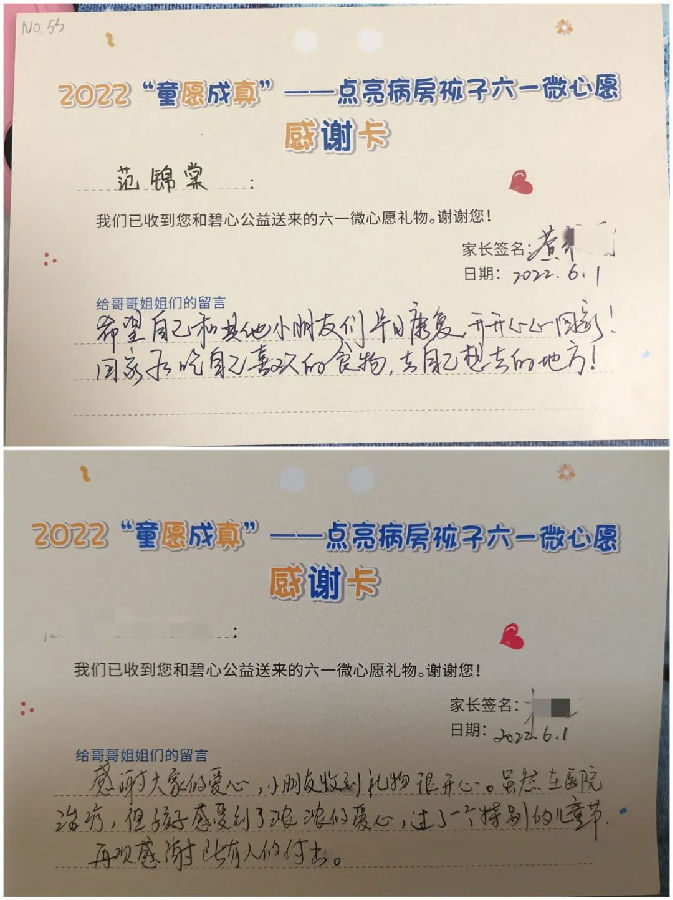 No.55
2022“童愿成真”——点亮病房孩子六一微心愿
感谢卡
范锦棠：
我们已收到您和碧心公益送来的六一微心愿礼物。谢谢您！
家长签名：黄
日期：2022.6.1
给哥哥姐姐们的留言
希望自己和其他小朋友们早日康复，开开心心回家！
回家后吃自己喜欢的食物，去自己想去的地方！
2022“童愿成真”——点亮病房孩子六一微心愿
感谢卡
：
我们已收到您和碧心公益送来的六一微心愿礼物。谢谢您！
家长签名：
日期：2022.6.1
给哥哥姐姐们的留言
感谢大家的爱心，小朋友收到礼物很开心。虽然在医院
治疗，但孩子感受到了浓浓的爱心，过了一个特别的儿童节.
再次感谢所有人的付出。